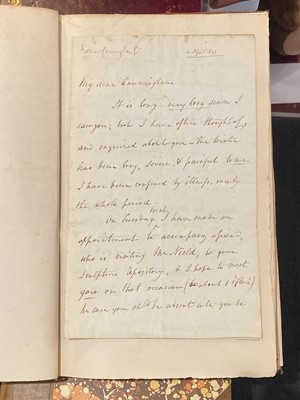 My dear Cunningham
It is long – very long since I
saw you; but I have often thought of,
and enquired about you – the winter
has been long, severe, & painful to me
I have been confined by illness, nearly
the whole period
On Tuesday next I have made an
appointment to accompany a friend,
who is visiting Mr Nield, to your
Sculpture repository, & I hope to meet
you on that occasion (about 1 o'Clock).
In case you shd be about will you be